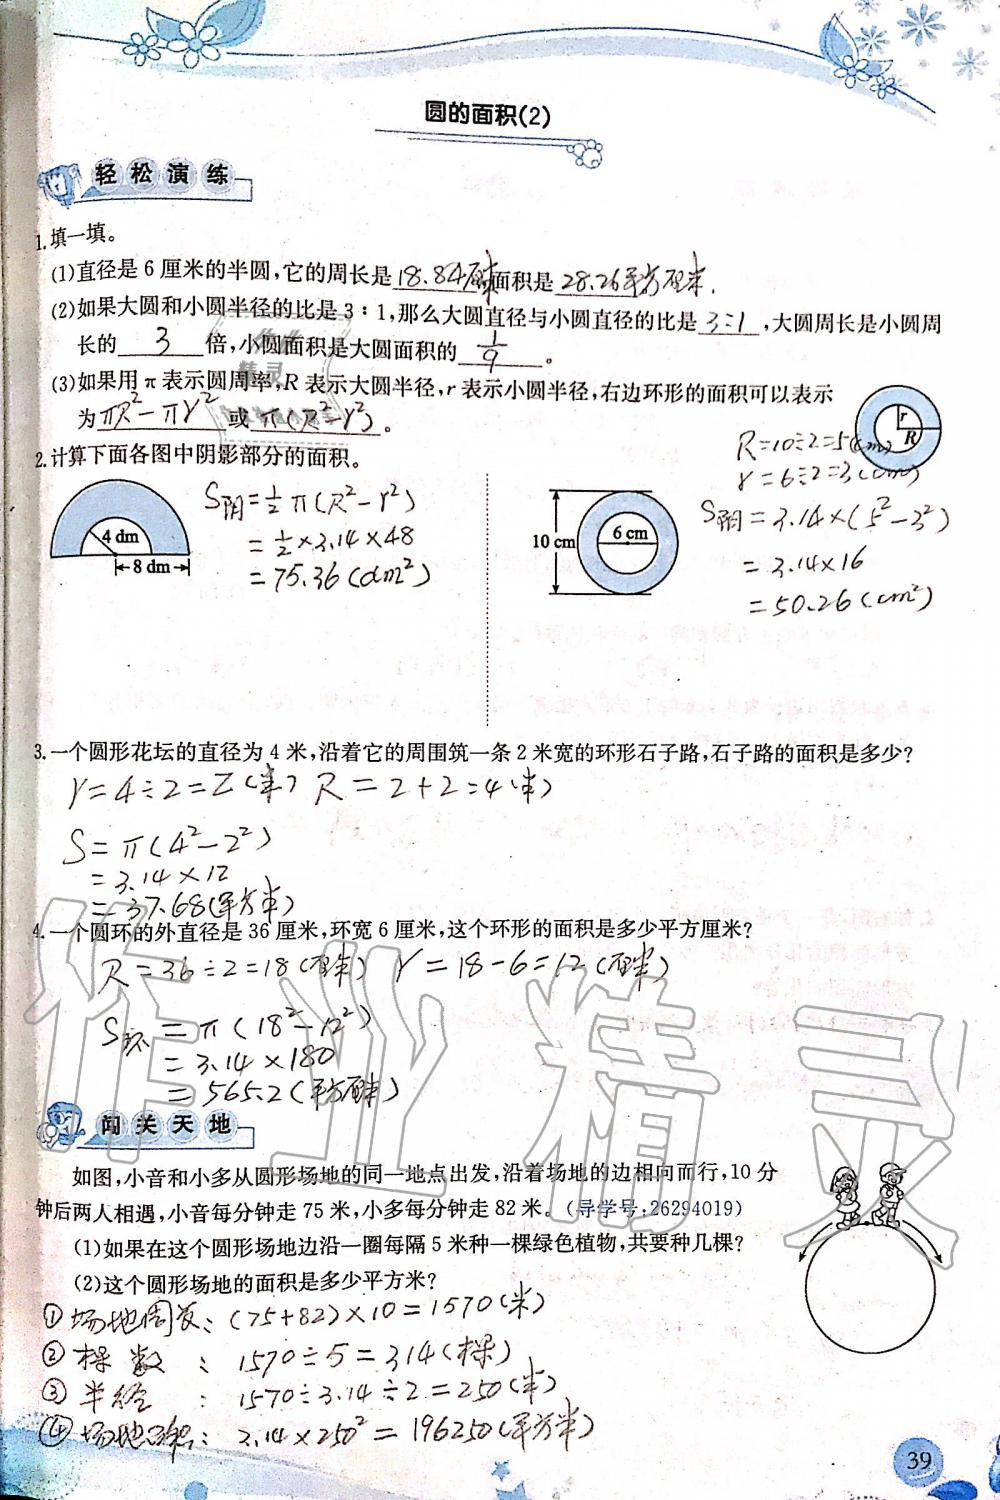 圆的面积(2)
轻松演练
1.填一填。
(1)直径是6厘米的半圆,它的周长是18.84厘米面积是28.26平方厘米.
(2)如果大圆和小圆半径的比是3:1,那么大圆直径与小圆直径的比是3:1,大圆周长是小圆周
长的3倍,小圆面积是大圆面积的1/9。
(3)如果用π表示圆周率,R表示大圆半径,r表示小圆半径,右边环形的面积可以表示
为πR²-πr²或π(R²-r²)。
r
R
2.计算下面各图中阴影部分的面积。
4 dm
8 dm
S阴=½π(R²-r²)
=½×3.14×48
=75.36(dm²)
10 cm
6 cm
R=10÷2=5(cm)
r=6÷2=3(cm)
S阴=3.14×(5²-3²)
=3.14×16
=50.26(cm²)
3.一个圆形花坛的直径为4米,沿着它的周围筑一条2米宽的环形石子路,石子路的面积是多少?
r=4÷2=2(米) R=2+2=4(米)
S=π(4²-2²)
=3.14×12
=37.68(平方米)
4.一个圆环的外直径是36厘米,环宽6厘米,这个环形的面积是多少平方厘米?
R=36÷2=18(厘米) r=18-6=12(厘米)
S环=π(18²-12²)
=3.14×180
=565.2(平方厘米)
作业精灵
闯关天地
如图,小音和小多从圆形场地的同一地点出发,沿着场地的边相向而行,10分
钟后两人相遇,小音每分钟走75米,小多每分钟走82米。(导学号:26294019)
(1)如果在这个圆形场地边沿一圈每隔5米种一棵绿色植物,共要种几棵?
(2)这个圆形场地的面积是多少平方米?
①场地周长:(75+82)×10=1570(米)
②棵数:1570÷5=314(棵)
③半径:1570÷3.14÷2=250(米)
④场地面积:3.14×250²=196250(平方米)
39